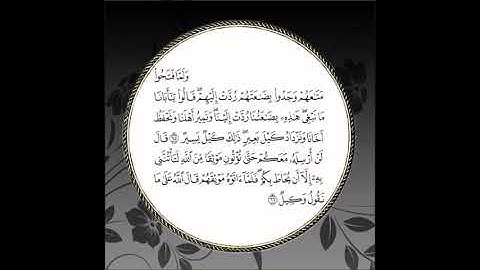 وَلَمَّا فَتَحُوا۟
مَتَـٰعَهُمْ وَجَدُوا۟ بِضَـٰعَتَهُمْ رُدَّتْ إِلَيْهِمْ ۖ قَالُوا۟ يَـٰٓأَبَانَا
مَا نَبْغِى ۖ هَـٰذِهِۦ بِضَـٰعَتُنَا رُدَّتْ إِلَيْنَا ۖ وَنَمِيرُ أَهْلَنَا وَنَحْفَظُ
أَخَانَا وَنَزْدَادُ كَيْلَ بَعِيرٍ ۖ ذَٰلِكَ كَيْلٌ يَسِيرٌ ٦٥ قَالَ
لَنْ أُرْسِلَهُۥ مَعَكُمْ حَتَّىٰ تُؤْتُونِ مَوْثِقًا مِّنَ ٱللَّهِ لَتَأْتُنَّنِى
بِهِۦٓ إِلَّآ أَن يُحَاطَ بِكُمْ ۖ فَلَمَّآ ءَاتَوْهُ مَوْثِقَهُمْ قَالَ ٱللَّهُ عَلَىٰ مَا
نَقُولُ وَكِيلٌ ٦٦